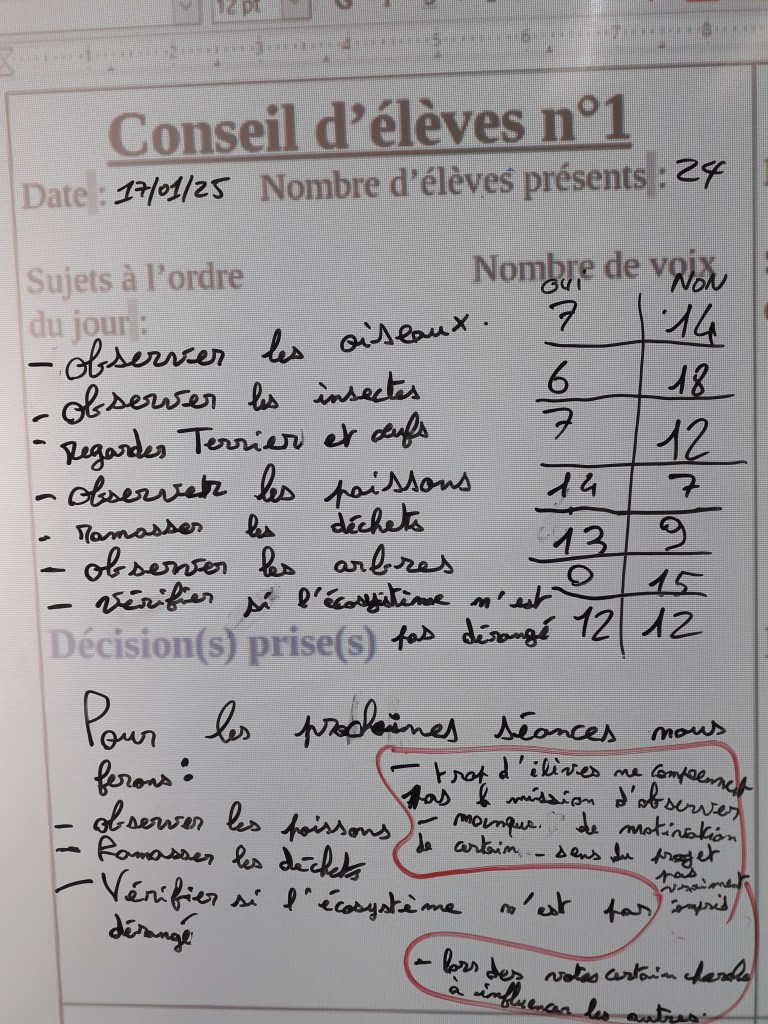 12 pt
1 2 3 4 5 6 7 8
Conseil d'élèves n°1
Date : 17/01/25 Nombre d'élèves présents : 24
Sujets à l'ordre du jour : Nombre de voix
OUI NON
- observer les oiseaux. 7 14
- observer les insectes 6 18
- Regarder Terrier et œufs 7 12
- observer les poissons 14 7
- ramasser les déchets 13 9
- observer les arbres 0 15
- vérifier si l'écosystème n'est
pas dérangé 12 12
Décision(s) prise(s)
Pour les prochaines séances nous
ferons :
- observer les poissons
- Ramasser les déchets
- Vérifier si l'écosystème n'est pas
dérangé
- trop d'élèves ne comprennent
pas la mission d'observer
- manque de motivation
de certain - sens du projet
pas
vraiment
compris
- lors des votes certain cherche
à influencer les autres.